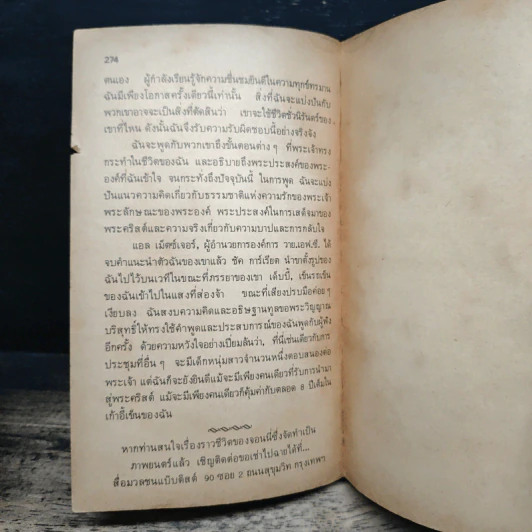 274
ตนเอง ผู้กำลังเรียนรู้จักความชื่นชมยินดีในความทุกข์ทรมาน
ฉันมีเพียงโอกาสครั้งเดียวนี้เท่านั้น สิ่งที่ฉันจะแบ่งปันกับ
พวกเขาอาจจะเป็นสิ่งที่ตัดสินว่า เขาจะใช้ชีวิตชั่วนิรันดร์ของ
เขาที่ไหน ดังนั้นฉันจึงรับความรับผิดชอบนี้อย่างจริงจัง
ฉันจะพูดกับพวกเขาถึงขั้นตอนต่าง ๆ ที่พระเจ้าทรง
กระทำในชีวิตของฉัน และอธิบายถึงพระประสงค์ของพระ-
องค์ที่ฉันเข้าใจ จนกระทั่งถึงปัจจุบันนี้ ในการพูด ฉันจะแบ่ง
ปันแนวความคิดเกี่ยวกับธรรมชาติแห่งความรักของพระเจ้า
พระลักษณะของพระองค์ พระประสงค์ในการเสด็จมาของ
พระคริสต์และความจริงเกี่ยวกับความบาปและการกลับใจ
แอล เม็ตซ์เจอร์, ผู้อำนวยการองค์การ วาย.เอฟ.ซี. ได้
จบคำแนะนำตัวฉันของเขาแล้ว ชัค การ์เรียต นำขาตั้งรูปของ
ฉันไปไว้บนเวทีในขณะที่ภรรยาของเขา เด็บบี้, เข็นรถเข็น
ของฉันเข้าไปในแสงที่ส่องจ้า ขณะที่เสียงปรบมือค่อย ๆ
เงียบลง ฉันสงบความคิดและอธิษฐานทูลขอพระวิญญาณ
บริสุทธิ์ให้ทรงใช้คำพูดและประสบการณ์ของฉันพูดกับผู้ฟัง
อีกครั้ง ด้วยความหวังใจอย่างเปี่ยมล้นว่า, ที่นี่เช่นเดียวกับการ
ประชุมที่อื่น ๆ จะมีเด็กหนุ่มสาวจำนวนหนึ่งตอบสนองต่อ
พระเจ้า แต่ฉันก็จะยังยินดีแม้จะมีเพียงคนเดียวที่รับการนำมา
สู่พระคริสต์ แม้จะมีเพียงคนเดียวก็คุ้มค่ากับตลอด 8 ปีเต็มใน
เก้าอี้เข็นของฉัน
หากท่านสนใจเรื่องราวชีวิตของจอนนี่ซึ่งจัดทำเป็น
ภาพยนตร์แล้ว เชิญติดต่อขอเช่าไปฉายได้ที่...
สื่อมวลชนแบ๊บติสต์ 90 ซอย 2 ถนนสุขุมวิท กรุงเทพฯ